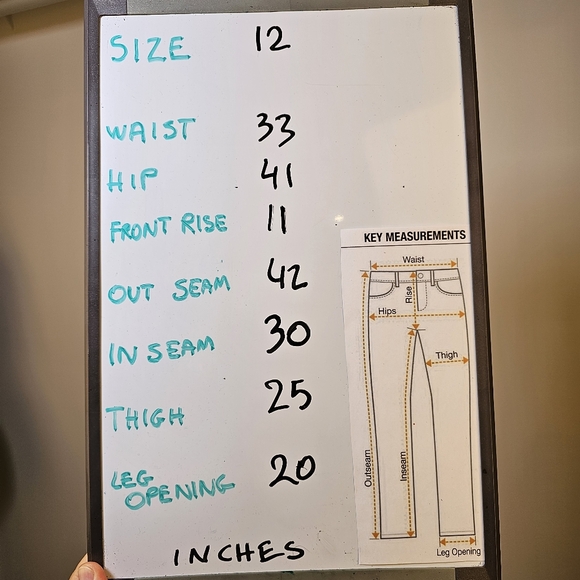 SIZE 12
WAIST 33
HIP 41
FRONT RISE 11
OUT SEAM 42
IN SEAM 30
THIGH 25
LEG OPENING 20
INCHES
KEY MEASUREMENTS
Waist
Rise
Hips
Thigh
Outseam
Inseam
Leg Opening